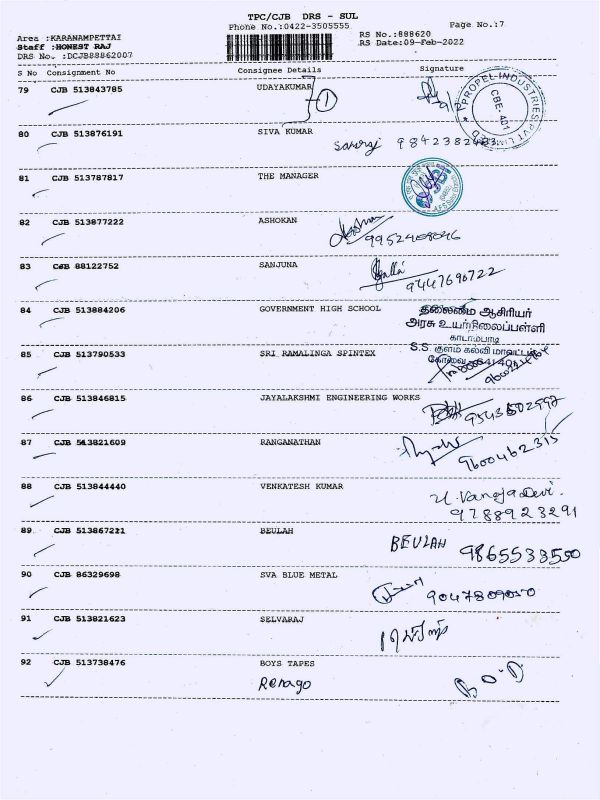 TPC/CJB DRS - SUL
Phone No.:0422-3505555
Page No.:7
Area :KARANAMPETTAI
Staff :HONEST RAJ
DRS No. :DCJB88862007
RS No.:888620
RS Date:09-Feb-2022
S No Consignment No Consignee Details Signature
79 CJB 513843785 UDAYAKUMAR
1
PROPEL INDUSTRIES PVT LIMITED
CBE-401
80 CJB 513876191 SIVA KUMAR
81 CJB 513787817 THE MANAGER
82 CJB 513877222 ASHOKAN
83 CJB 88122752 SANJUNA
9447690722
84 CJB 513884206 GOVERNMENT HIGH SCHOOL
தலைமை ஆசிரியர்
அரசு உயர்நிலைப்பள்ளி
காடாம்பாடி
S.S. குளம் கல்வி மாவட்டம்
கோவை
85 CJB 513790533 SRI RAMALINGA SPINTEX
86 CJB 513846815 JAYALAKSHMI ENGINEERING WORKS
87 CJB 513821609 RANGANATHAN
9600462315
88 CJB 513844440 VENKATESH KUMAR
U. Vanaja Devi.
9788923291
89 CJB 513867221 BEULAH
BEULAH 9865533550
90 CJB 86329698 SVA BLUE METAL
91 CJB 513821623 SELVARAJ
92 CJB 513738476 BOYS TAPES
Renago